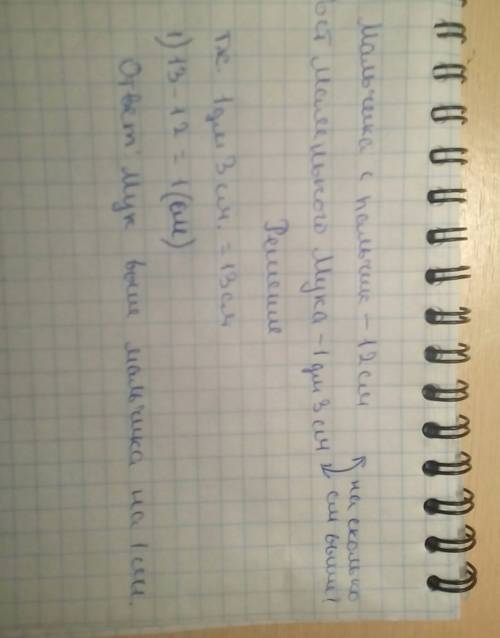 Мальчика с пальчик - 12 см
ост Маленького Мука - 1 дм 3 см
на сколько
см выше?
Решение
т.к. 1 дм 3 см. = 13 см
1) 13 - 12 = 1 (см)
Ответ: Мук выше мальчика на 1 см.